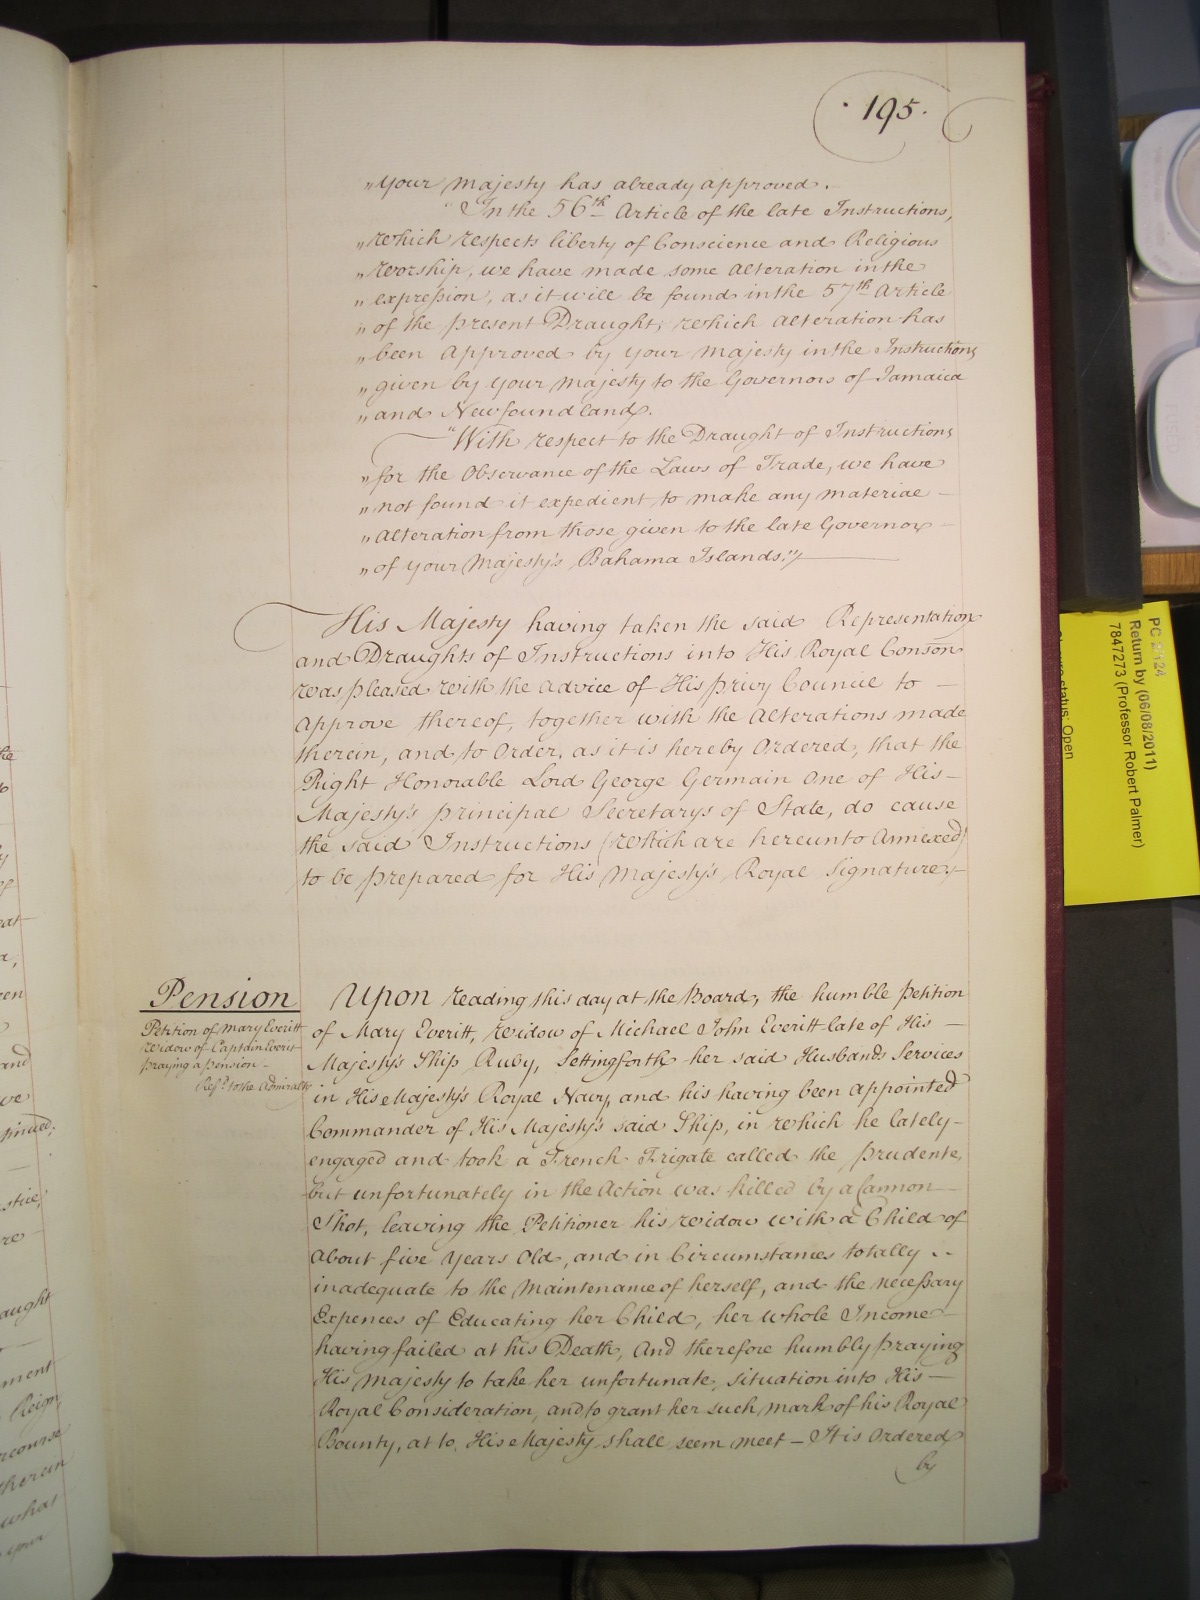 · 195 ·
„ Your Majesty has already approved. –
"In the 56th Article of the late Instructions,
„ which respects liberty of Conscience and Religious
„ Worship, we have made some alteration in the
„ expression, as it will be found in the 57th Article
„ of the present Draught, which alteration has
„ been approved by your Majesty in the Instructions
„ given by your Majesty to the Governors of Jamaica
„ and Newfoundland.
"With respect to the Draught of Instructions
„ for the Observance of the Laws of Trade, we have
„ not found it expedient to make any material –
„ alteration from those given to the late Governor –
„ of your Majesty's Bahama Islands."
His Majesty having taken the said Representation
and Draughts of Instructions into His Royal Conson
was pleased with the advice of His Privy Council to –
approve thereof, together with the alterations made
therein, and to Order, as it is hereby Ordered, that the
Right Honorable Lord George Germain One of His –
Majesty's Principal Secretarys of State, do cause
the said Instructions (which are hereunto Annexed)
to be prepared for His Majesty's Royal Signature, –
Pension
Petition of Mary Everitt
Widow of Captain Everit
praying a pension –
Refd to the Admiralty
Upon reading this day at the Board, the humble Petition
of Mary Everitt, Widow of Michael John Everitt late of His –
Majesty's Ship Ruby, Setting forth her said Husbands Services
in His Majesty's Royal Navy, and his having been appointed
Commander of His Majesty's said Ship, in which he lately –
engaged and took a French Frigate called the Prudente,
but unfortunately in the Action was killed by a Cannon –
Shot, leaving the Petitioner his Widow with a Child of
about five Years Old, and in Circumstances totally ..
inadequate to the Maintenance of herself, and the necessary
Expences of Educating her Child, her whole Income –
having failed at his Death, And therefore humbly praying
His Majesty to take her unfortunate situation into His –
Royal Consideration, and to grant her such mark of his Royal
Bounty, as to His Majesty shall seem meet – It is Ordered
by
PC 2/124
Return by (06/08/2011)
7847273 (Professor Robert Palmer)
status: Open